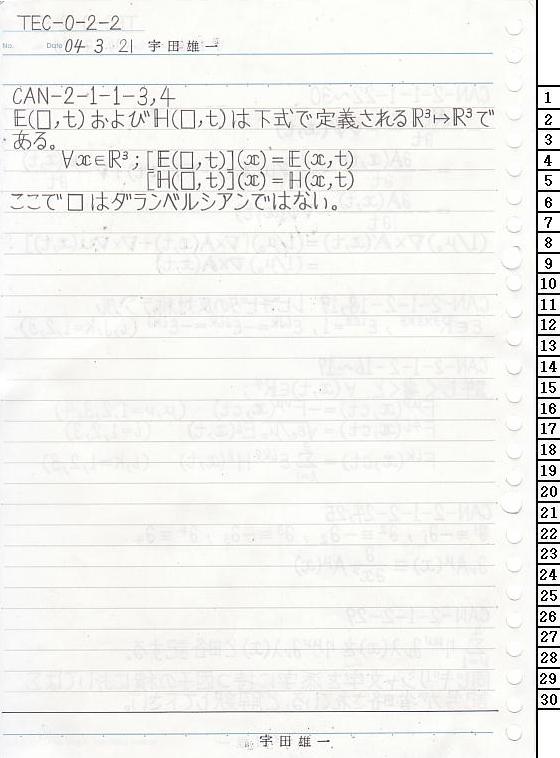 TEC-0-2-2
No.
Date 04・3・21 宇田雄一
CAN-2-1-1-3,4
𝔼(□,t)およびℍ(□,t)は下式で定義されるℝ³↦ℝ³で
ある。
∀x∈ℝ³;[𝔼(□,t)](x)=𝔼(x,t)
[ℍ(□,t)](x)=ℍ(x,t)
ここで□はダランベルシアンではない。
宇田雄一
1
2
3
4
5
6
7
8
9
10
11
12
13
14
15
16
17
18
19
20
21
22
23
24
25
26
27
28
29
30